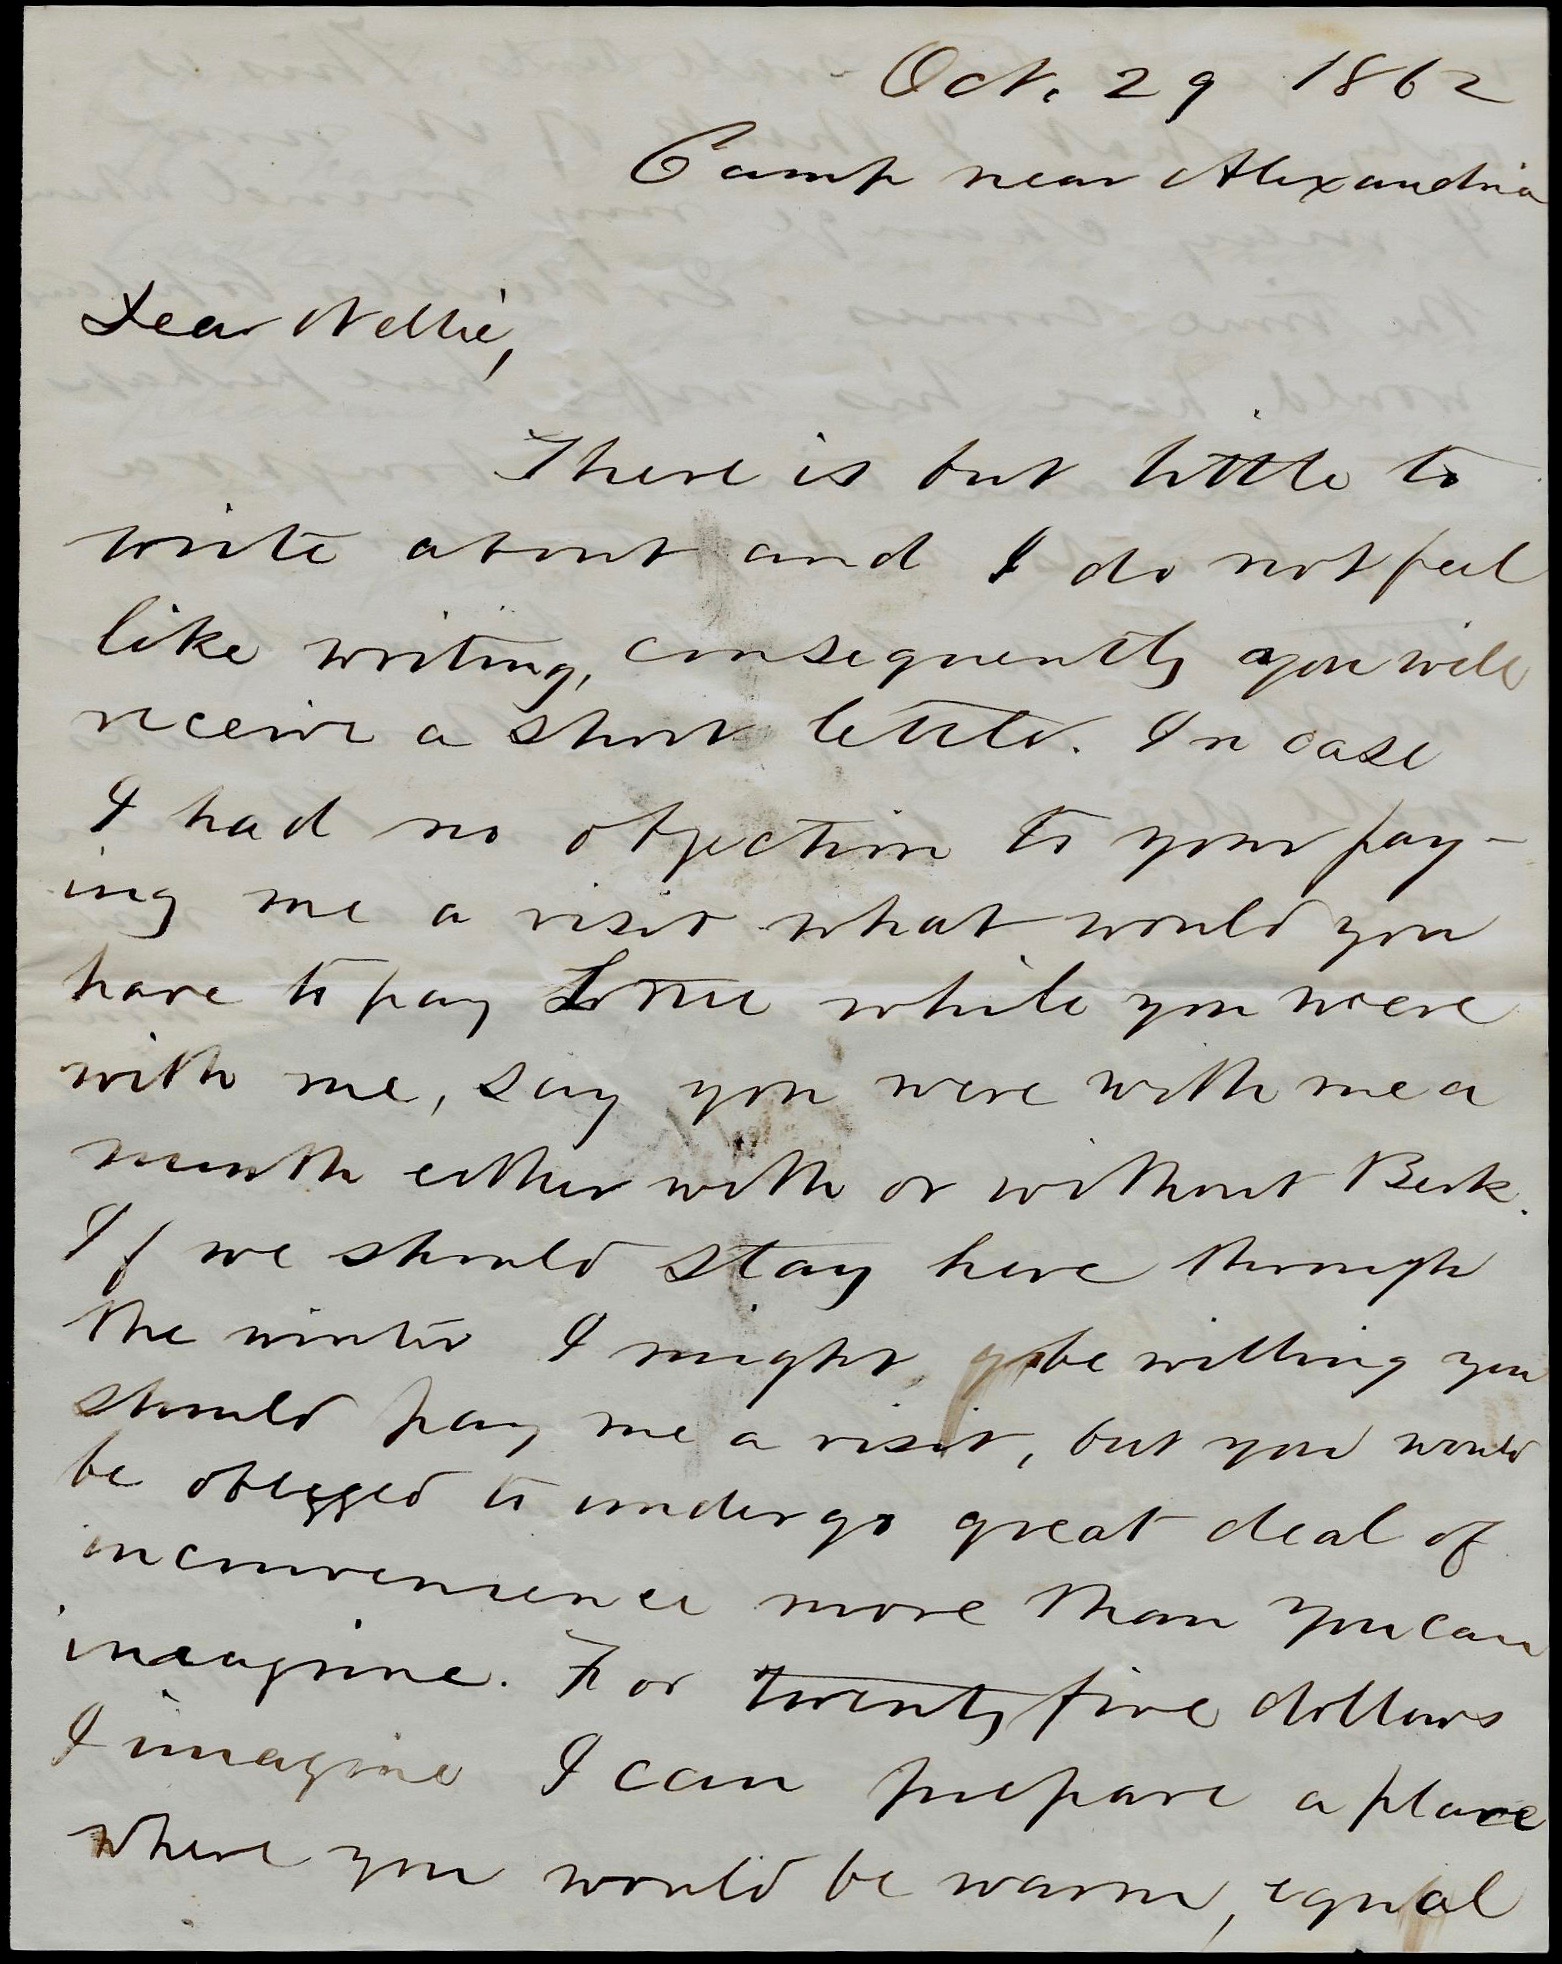 Oct. 29 1862
Camp near Alexandria
Dear Nellie,
There is but little to
write about and I do not feel
like writing, consequently you will
receive a short letter. In case
I had no objection to your pay-
ing me a visit what would you
have to pay Lottie while you were
with me, say you were with me a
month either with or without Berk.
If we should stay here through
the winter I might be willing you
should pay me a visit, but you would
be obliged to undergo great deal of
inconvenience more than you can
imagine. For twenty five dollars
I imagine I can prepare a place
where you would be warm, equal